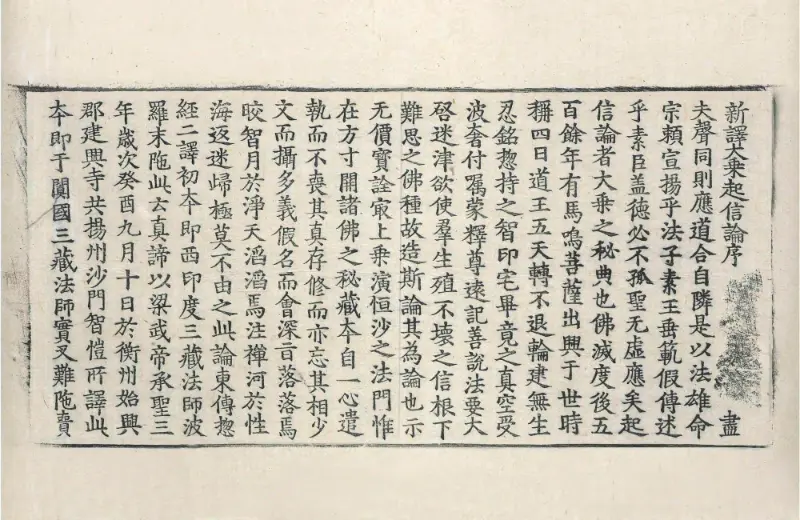 新譯大乗起信論序 盡
夫聲同則應道合自隣是以法雄命
宗賴宣揚乎法子素王垂範假傳述
乎素臣盖德必不孤聖无虛應矣起
信論者大乗之秘典也佛滅度後五
百餘年有馬鳴菩薩出興于世時
稱四日道王五天轉不退輪建無生
忍銘揔持之智印宅畢竟之真空受
波奢付囑蒙釋尊遠記善說法要大
啓迷津欲使羣生殖不壞之信根下
難思之佛種故造斯論其為論也示
无價寶詮冣上乗演恒沙之法門惟
在方寸開諸佛之秘藏夲自一心遣
執而不喪其真存修而亦忘其相少
文而攝多義假名而會深㫖落落焉
皎智月於淨天滔滔焉注禪河於性
海返迷歸極莫不由之此論東傳揔
經二譯初夲即西印度三藏法師波
羅末陁此云真諦以梁武帝承聖三
年歲次癸酉九月十日於衡州始興
郡建興寺共揚州沙門智愷所譯此
夲即于闐國三藏法師實叉難陁賷